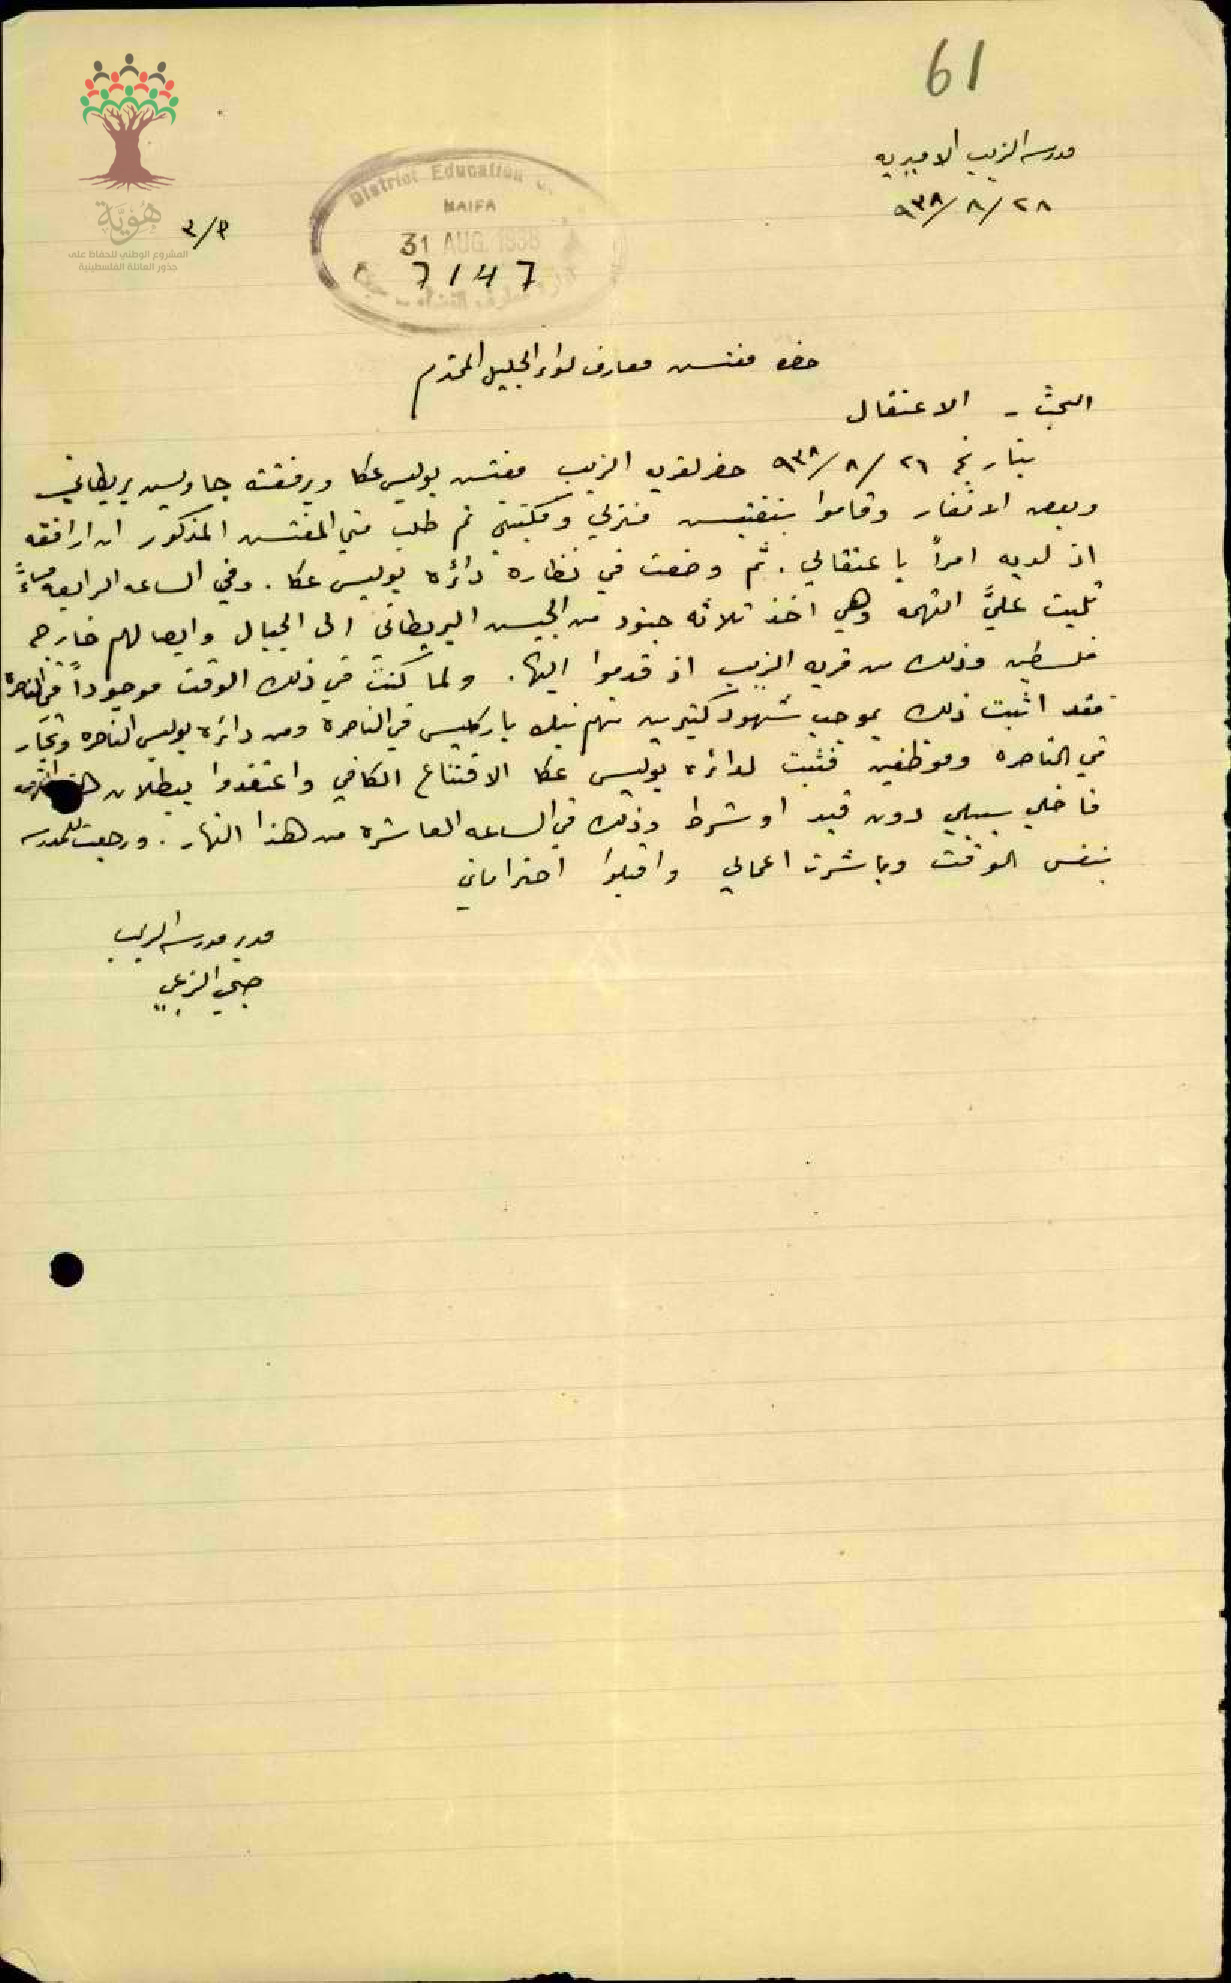 61
مدرسه الزيب الاميريه
٢٨/ ٨/ ٩٣٨
هُويَّة
المشروع الوطني للحفاظ على
جذور العائلة الفلسطينية
٣/٩
District Education
HAIFA
31 AUG. 1938
7147
حضرة مفتش معارف لواء الجليل المحترم
البحث - الاعتقال
بتاريخ ٢٦/ ٨/ ٩٣٨ حضر لقريه الزيب مفتش بوليس عكا وبرفقته جاويش بريطاني
وبعض الانفار وقاموا بتفتيش منزلي ومكتبتي ثم طلب مني المفتش المذكور ان ارافقه
اذ لديه امراً باعتقالي. ثم وضعت في نظارة دائرة بوليس عكا. وفي الساعه الرابعه مساءً
تليت عليَّ التهمه وهي اخذ ثلاثه جنود من الجيش البريطاني الى الجبال وايصالهم خارجه
فلسطين وذلك من قريه الزيب اذ قدموا اليها. ولما كنت في ذلك الوقت موجوداً في الناصرة
فقد اثبت ذلك بموجب شهود كثيرين منهم بنك باركليس في الناصرة ومن دائرة بوليس الناصره وتجار
في الناصره وموظفين فثبت لدائرة بوليس عكا الاقتناع الكافي واعتقدوا ببطلان هذه التهمه
فاخلي سبيلي دون قيد او شرط وذلك في الساعه العاشرة من هذا النهار. ورجعت للمدرسه
بنفس الوقت وباشرت اعمالي واقبلوا احتراماتي
مدير مدرسه الزيب
صبحي الزعبي